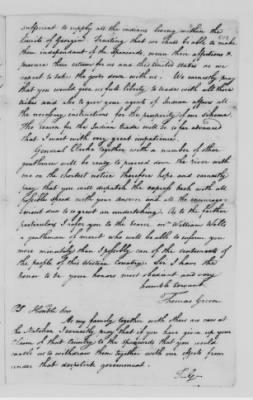 sufficient to supply all the indians living within the
limits of Georgia Trusting that we shall be able to make
them independent of the Spaniards, wean their affections &
procure their esteem for us and the united states as we
expect to take the goods down with us. We earnestly pray
that you would give us full liberty to trade with all these
tribes and also to give your agent of Indian affairs all
the necessary instructions for the prosperity of our scheme.
The season for the Indian trade will be so far advanced
that I await with very great impatience.
General Clarke together with a number of other
gentlemen will be ready to proceed down the river with
me on the shortest notice therefore hope and earnestly
pray that you will dispatch the express back with all
possible speed with your answer and all the encourage-
ment due to so great an undertaking. As to the further
particulars I refer you to the bearer mr William Wells
a gentleman of merit who will be able to inform you
more minutely than I possibly can of the sentiments of
the people of this Western Country. Sir I have the
honor to be your honors most obedient and very
humble servant
Thomas Green
PS Honble Sir
As my family together with theirs are now at
the Natchez I earnestly pray that if you have given up your
claim of that Country to the Spaniards that you would
enable us to withdraw them together with our effects from
under that despotick government.
T. G.